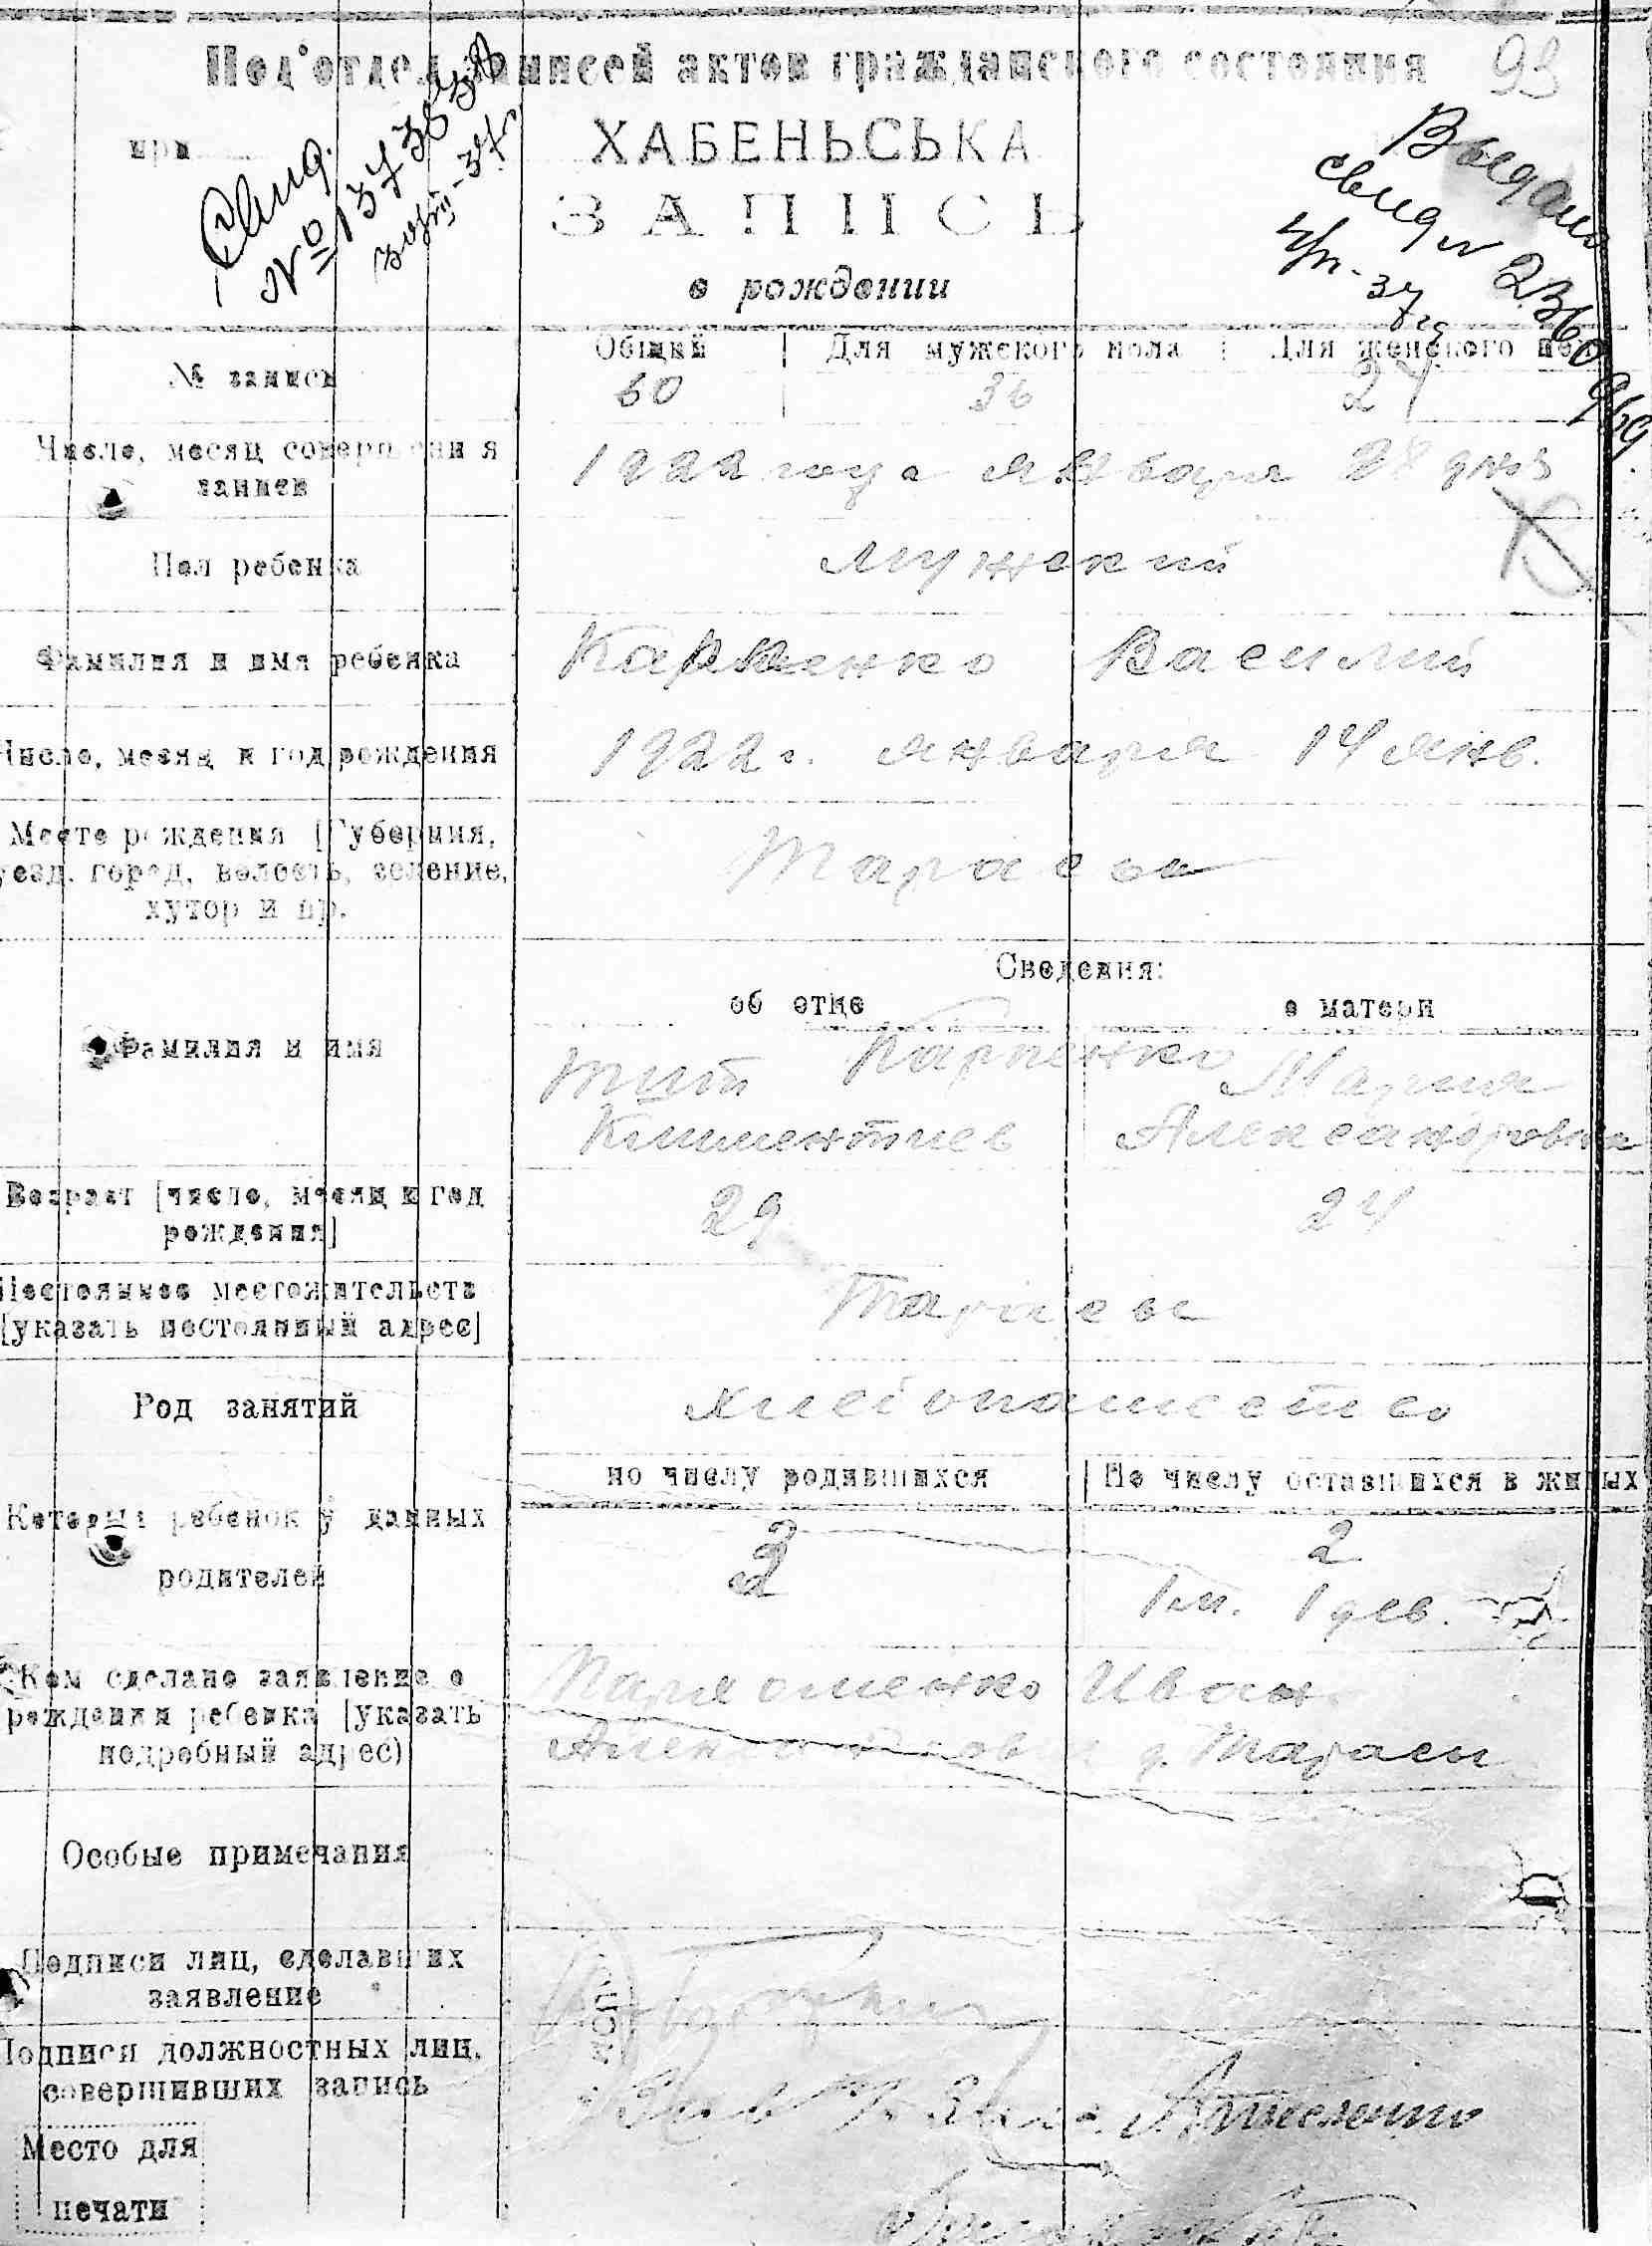 Под'отдел записей актов гражданского состояния 93
при ХАБЕНЬСЬКА
Свид.
№ 1373838
Выдано
свид №
ЗАПИСЬ
о рождении
№ записи
Общий Для мужского пола Для женского пола
60 36 24
Число, месяц совершения
записи
1922 года января 28 дня
Пол ребенка мужский
Фамилия и имя ребенка Карпенко Василий
Число, месяц и год рождения 1922 г. января 14 янв.
Место рождения [Губерния,
уезд, город, волость, селение,
хутор и пр.
Тарасы
Сведения:
об отце о матери
Фамилия и имя
Карпенко
Тит Мария
Климентиев Александровна
Возраст [число, месяц и год
рождения]
29 24
Постоянное местожительств
[указать постоянный адрес]
Тарасы
Род занятий хлебопашество
по числу родившихся По числу оставшихся в живых
Который ребенок у данных
родителей
3 2
1 м. 1 дев.
Кем сделано заявление о
рождении ребенка [указать
подробный адрес)
Пархоменко Иван
д. Тарасы
Особые примечания
Подписи лиц, сделавших
заявление
Подписи должностных лиц,
совершивших запись
Место для
печати